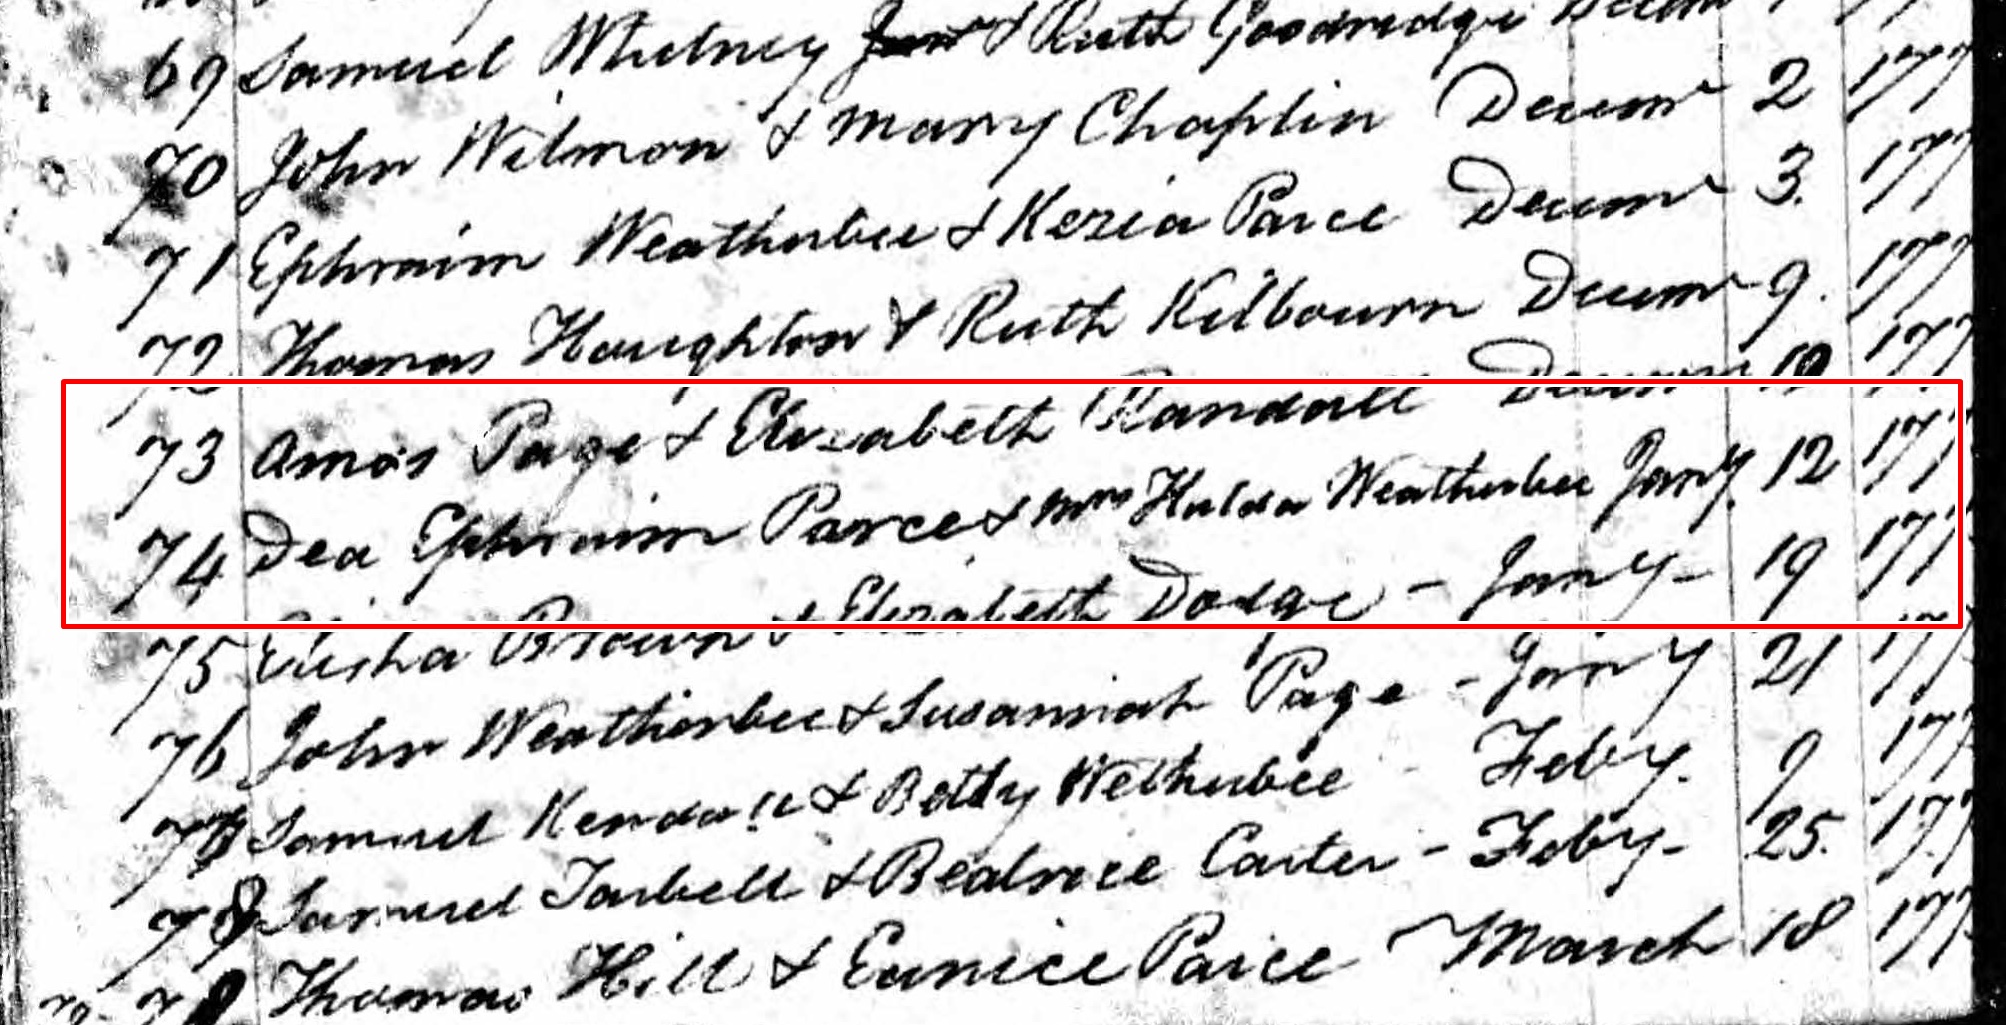 69 Samuel Whitney Junr & Ruth Goodridge Decem
70 John Wilmon & Mary Chaplin Decemr 2 177
71 Ephraim Weatherbee & Kezia Parce Decemr 3. 177
72 Thomas Houghton & Ruth Kilbourn Decemr 9. 177
73 Amos Page & Elizabeth Randall Decemr 177
74 Dea Ephraim Parce & Mrs Hulda Weatherbee Jany. 12 177
75 Elisha Brown & Elizabeth Dodge - Jany - 19 177
76 John Weatherbee & Susannah Page - Jany 21 177
77 Samuel Kendall & Betty Wetherbee Feby. 9 177
78 Samuel Tarbell & Beatrice Carter - Feby - 25. 177
79 Thomas Hill & Eunice Parce March 18 177